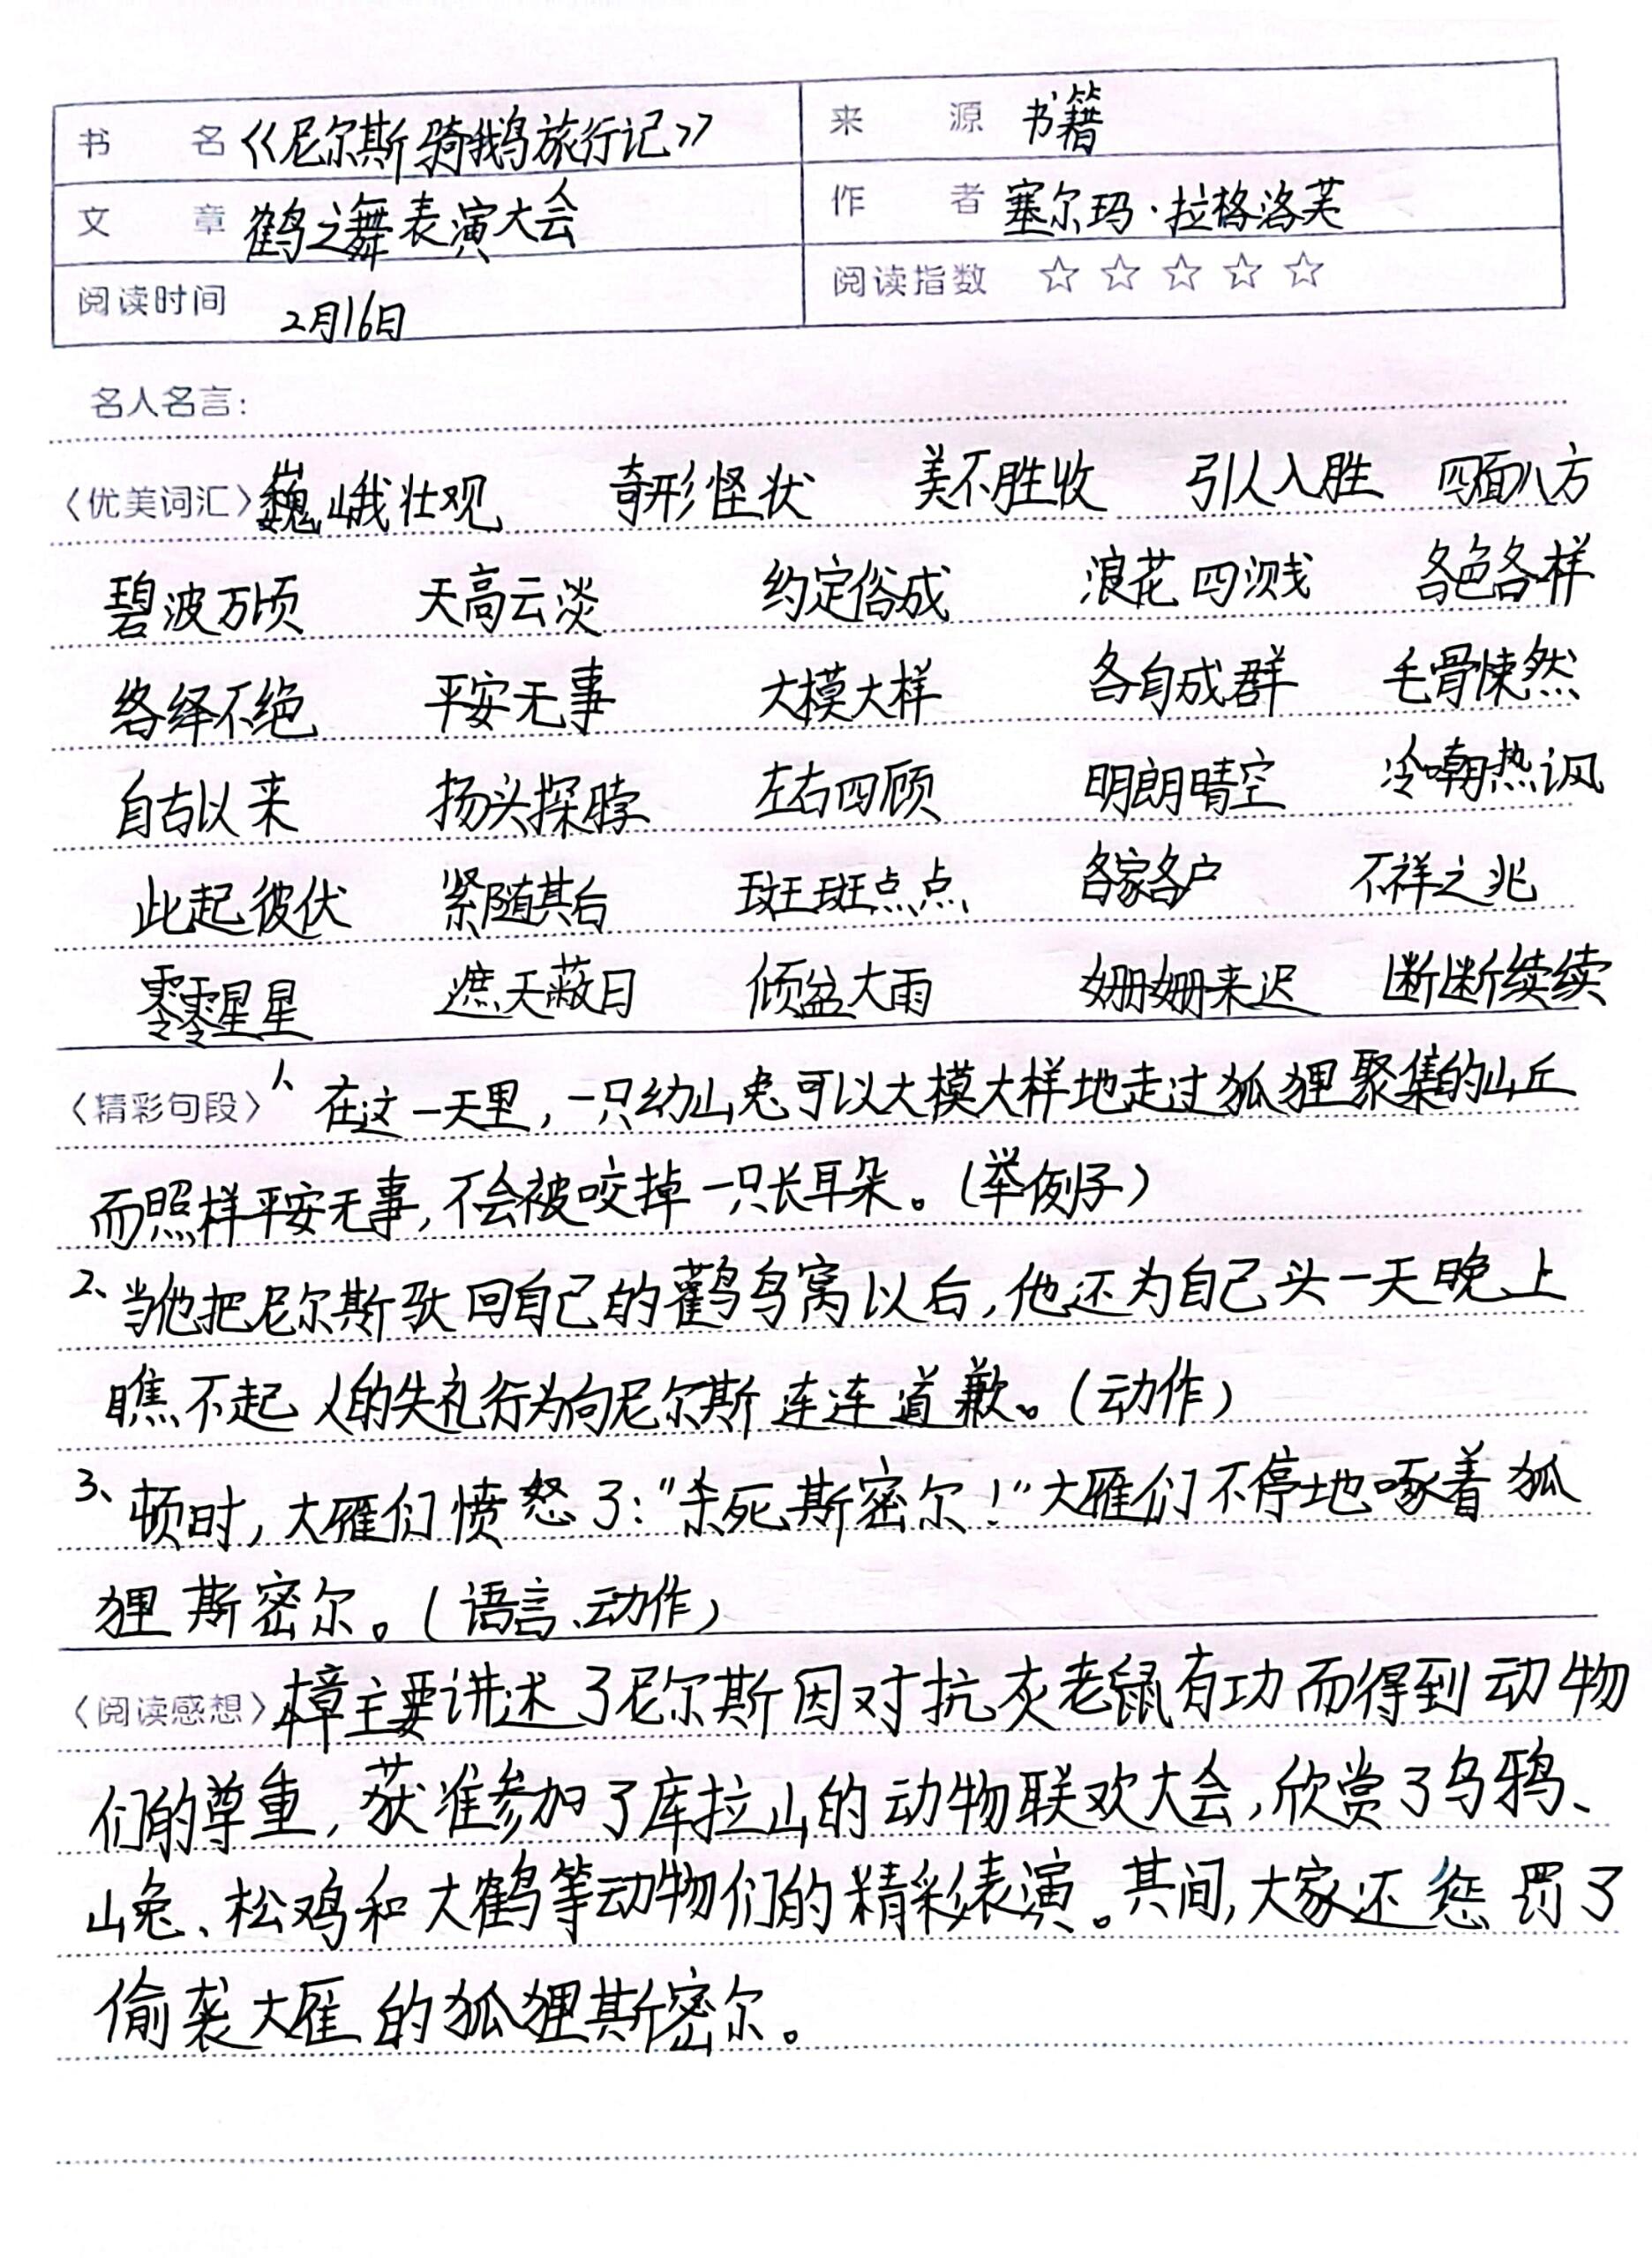 书名 《尼尔斯骑鹅旅行记》 来源 书籍
文章 鹤之舞表演大会 作者 塞尔玛·拉格洛芙
阅读时间 2月16日 阅读指数 ☆☆☆☆☆
名人名言：
〈优美词汇〉巍峨壮观 奇形怪状 美不胜收 引人入胜 四面八方
碧波万顷 天高云淡 约定俗成 浪花四溅 各色各样
络绎不绝 平安无事 大模大样 各自成群 毛骨悚然
自古以来 扬头探脖 左右四顾 明朗晴空 冷嘲热讽
此起彼伏 紧随其后 斑斑点点 各家各户 不祥之兆
零零星星 遮天蔽日 倾盆大雨 姗姗来迟 断断续续
〈精彩句段〉1、在这一天里，一只幼山兔可以大模大样地走过狐狸聚集的山丘
而照样平安无事，不会被咬掉一只长耳朵。（举例子）
2、当他把尼尔斯驮回自己的鹳鸟窝以后，他还为自己头一天晚上
瞧不起人的失礼行为向尼尔斯连连道歉。（动作）
3、顿时，大雁们愤怒了：“杀死斯密尔！”大雁们不停地啄着狐
狸斯密尔。（语言、动作）
〈阅读感想〉本章主要讲述了尼尔斯因对抗灰老鼠有功而得到动物
们的尊重，获准参加了库拉山的动物联欢大会，欣赏了乌鸦、
山兔、松鸡和大鹤等动物们的精彩表演。其间，大家还惩罚了
偷袭大雁的狐狸斯密尔。